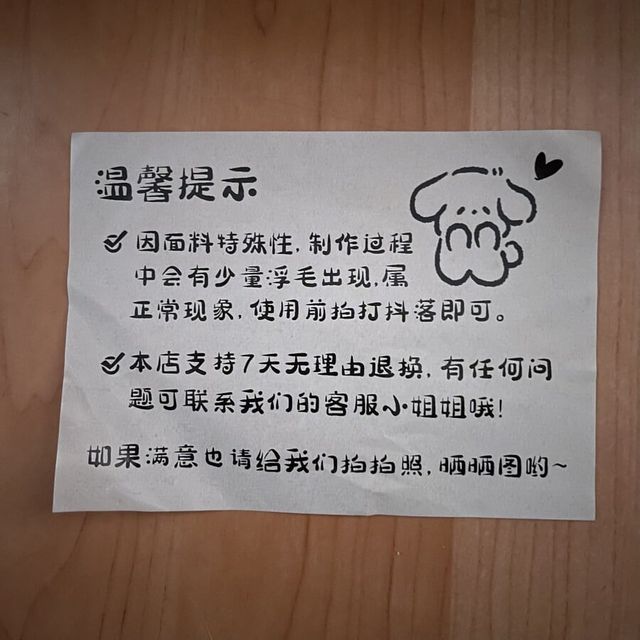 温馨提示
因面料特殊性,制作过程
中会有少量浮毛出现,属
正常现象,使用前拍打抖落即可。
本店支持7天无理由退换,有任何问
题可联系我们的客服小姐姐哦!
如果满意也请给我们拍拍照,晒晒图哟~